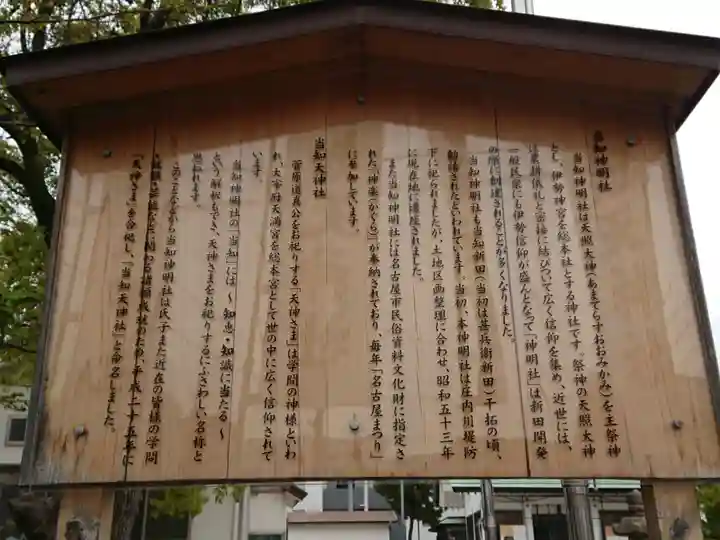 当知神明社
当知神明社は天照大神(あまてらすおおみかみ)を主祭神
とし、伊勢神宮を総本社とする神社です。祭神の天照大神
は農耕儀礼と密接に結びついて広く信仰を集め、近世には、
一般民衆にも伊勢信仰が盛んとなって「神明社」は新田開発
の際に創建されることが多くなりました。
当知神明社も当知新田(当初は甚兵衛新田)干拓の頃、
勧請されたといわれています。当初、本神明社は庄内川堤防
下に祀られましたが、土地区画整理に合わせ、昭和五十三年
に現在地に遷座されました。
また当知神明社には名古屋市民俗資料文化財に指定さ
れた「神楽(かぐら)」が奉納されており、毎年「名古屋まつり」
に参加しています。
当知天神社
菅原道真公をお祀りする「天神さま」は学問の神様といわ
れ、太宰府天満宮を総本宮として世の中に広く信仰されて
います。
当知神明社の「当知」には ~知恵・知識に当たる~
という解釈もでき、天神さまをお祀りするにふさわしい名称と
思われます。
このことから当知神明社は氏子また近在の皆様の学問
「天神さま」を合祀し、「当知天神社」と命名しました。